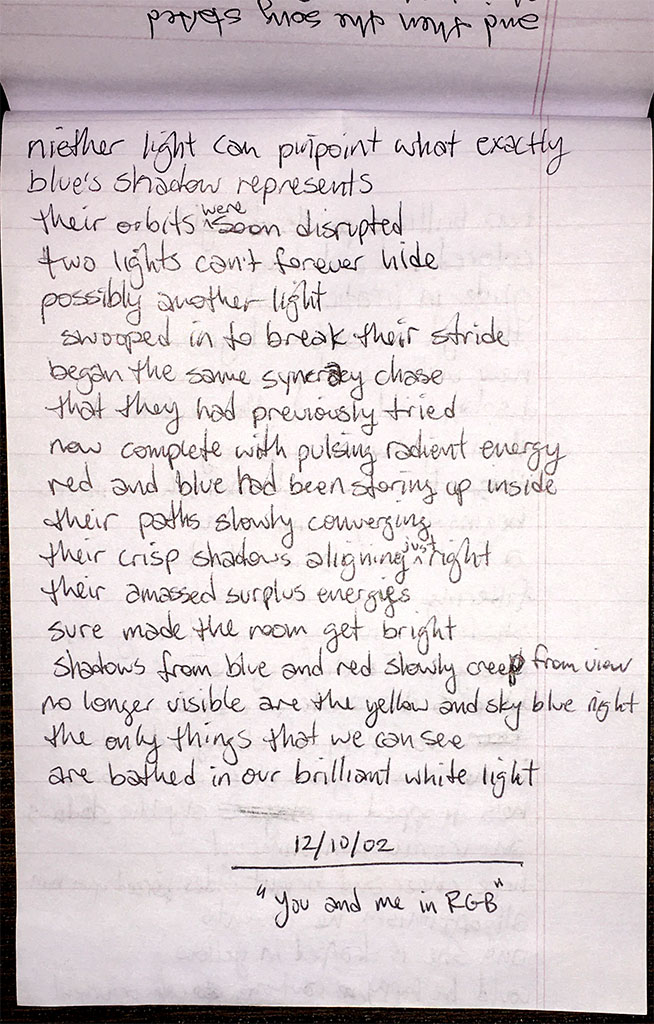 and then the song started
niether light can pinpoint what exactly
blue's shadow represents
their orbits were soon disrupted
two lights can't forever hide
possibly another light
swooped in to break their stride
began the same synergy chase
that they had previously tried
now complete with pulsing radient energy
red and blue had been storing up inside
their paths slowly converging
their crisp shadows aligning just right
their amassed surplus energies
sure made the room get bright
shadows from blue and red slowly creep from view
no longer visible are the yellow and sky blue right
the only things that we can see
are bathed in our brilliant white light
12/10/02
"You and me in RGB"